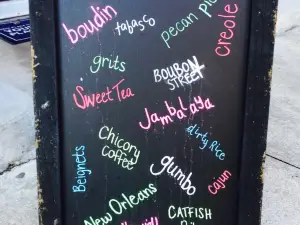 boudin
tabasco
pecan pie
creole
grits
BOUBON
STREET
Sweet Tea
Jambalaya
dirty Rice
Chicory
coffee
Beignets
gumbo
cajun
New Orleans
CATFISH